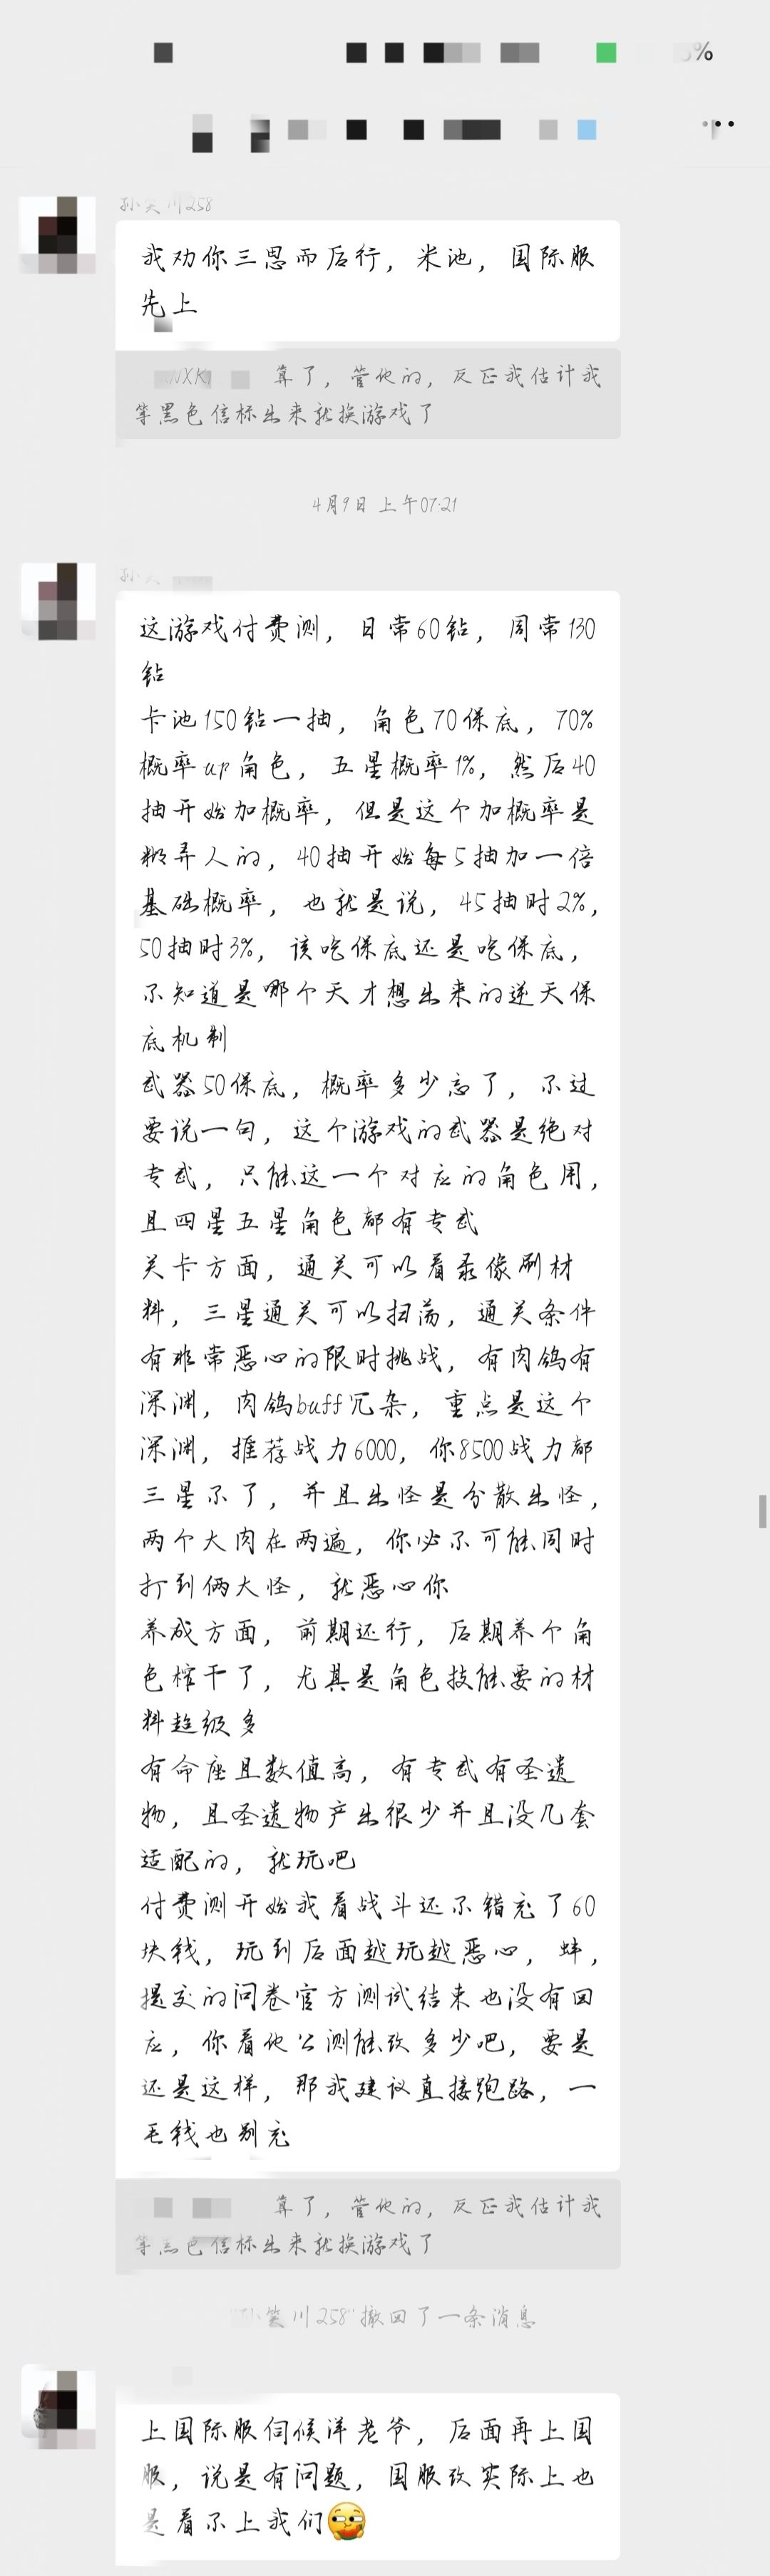 孙笑川258
我劝你三思而后行，米池，国际服
先上
算了，管他的，反正我估计我
等黑色信标出来就换游戏了
4月9日 上午07:21
这游戏付费测，日常60钻，周常130
钻
卡池150钻一抽，角色70保底，70%
概率up角色，五星概率1%，然后40
抽开始加概率，但是这个加概率是
糊弄人的，40抽开始每5抽加一倍
基础概率，也就是说，45抽时2%，
50抽时3%，该吃保底还是吃保底，
不知道是哪个天才想出来的逆天保
底机制
武器50保底，概率多少忘了，不过
要说一句，这个游戏的武器是绝对
专武，只能这一个对应的角色用，
且四星五星角色都有专武
关卡方面，通关可以看录像刷材
料，三星通关可以扫荡，通关条件
有非常恶心的限时挑战，有肉鸽有
深渊，肉鸽buff冗杂，重点是这个
深渊，推荐战力6000，你8500战力都
三星不了，并且出怪是分散出怪，
两个大肉在两遍，你必不可能同时
打到俩大怪，就恶心你
养成方面，前期还行，后期养个角
色榨干了，尤其是角色技能要的材
料超级多
有命座且数值高，有专武有圣遗
物，且圣遗物产出很少并且没几套
适配的，就玩吧
付费测开始我看战斗还不错充了60
块钱，玩到后面越玩越恶心，蚌，
提交的问卷官方测试结束也没有回
应，你看他公测能改多少吧，要是
还是这样，那我建议直接跑路，一
毛钱也别充
算了，管他的，反正我估计我
等黑色信标出来就换游戏了
笑川258"撤回了一条消息
上国际服伺候洋老爷，后面再上国
服，说是有问题，国服改实际上也
是看不上我们